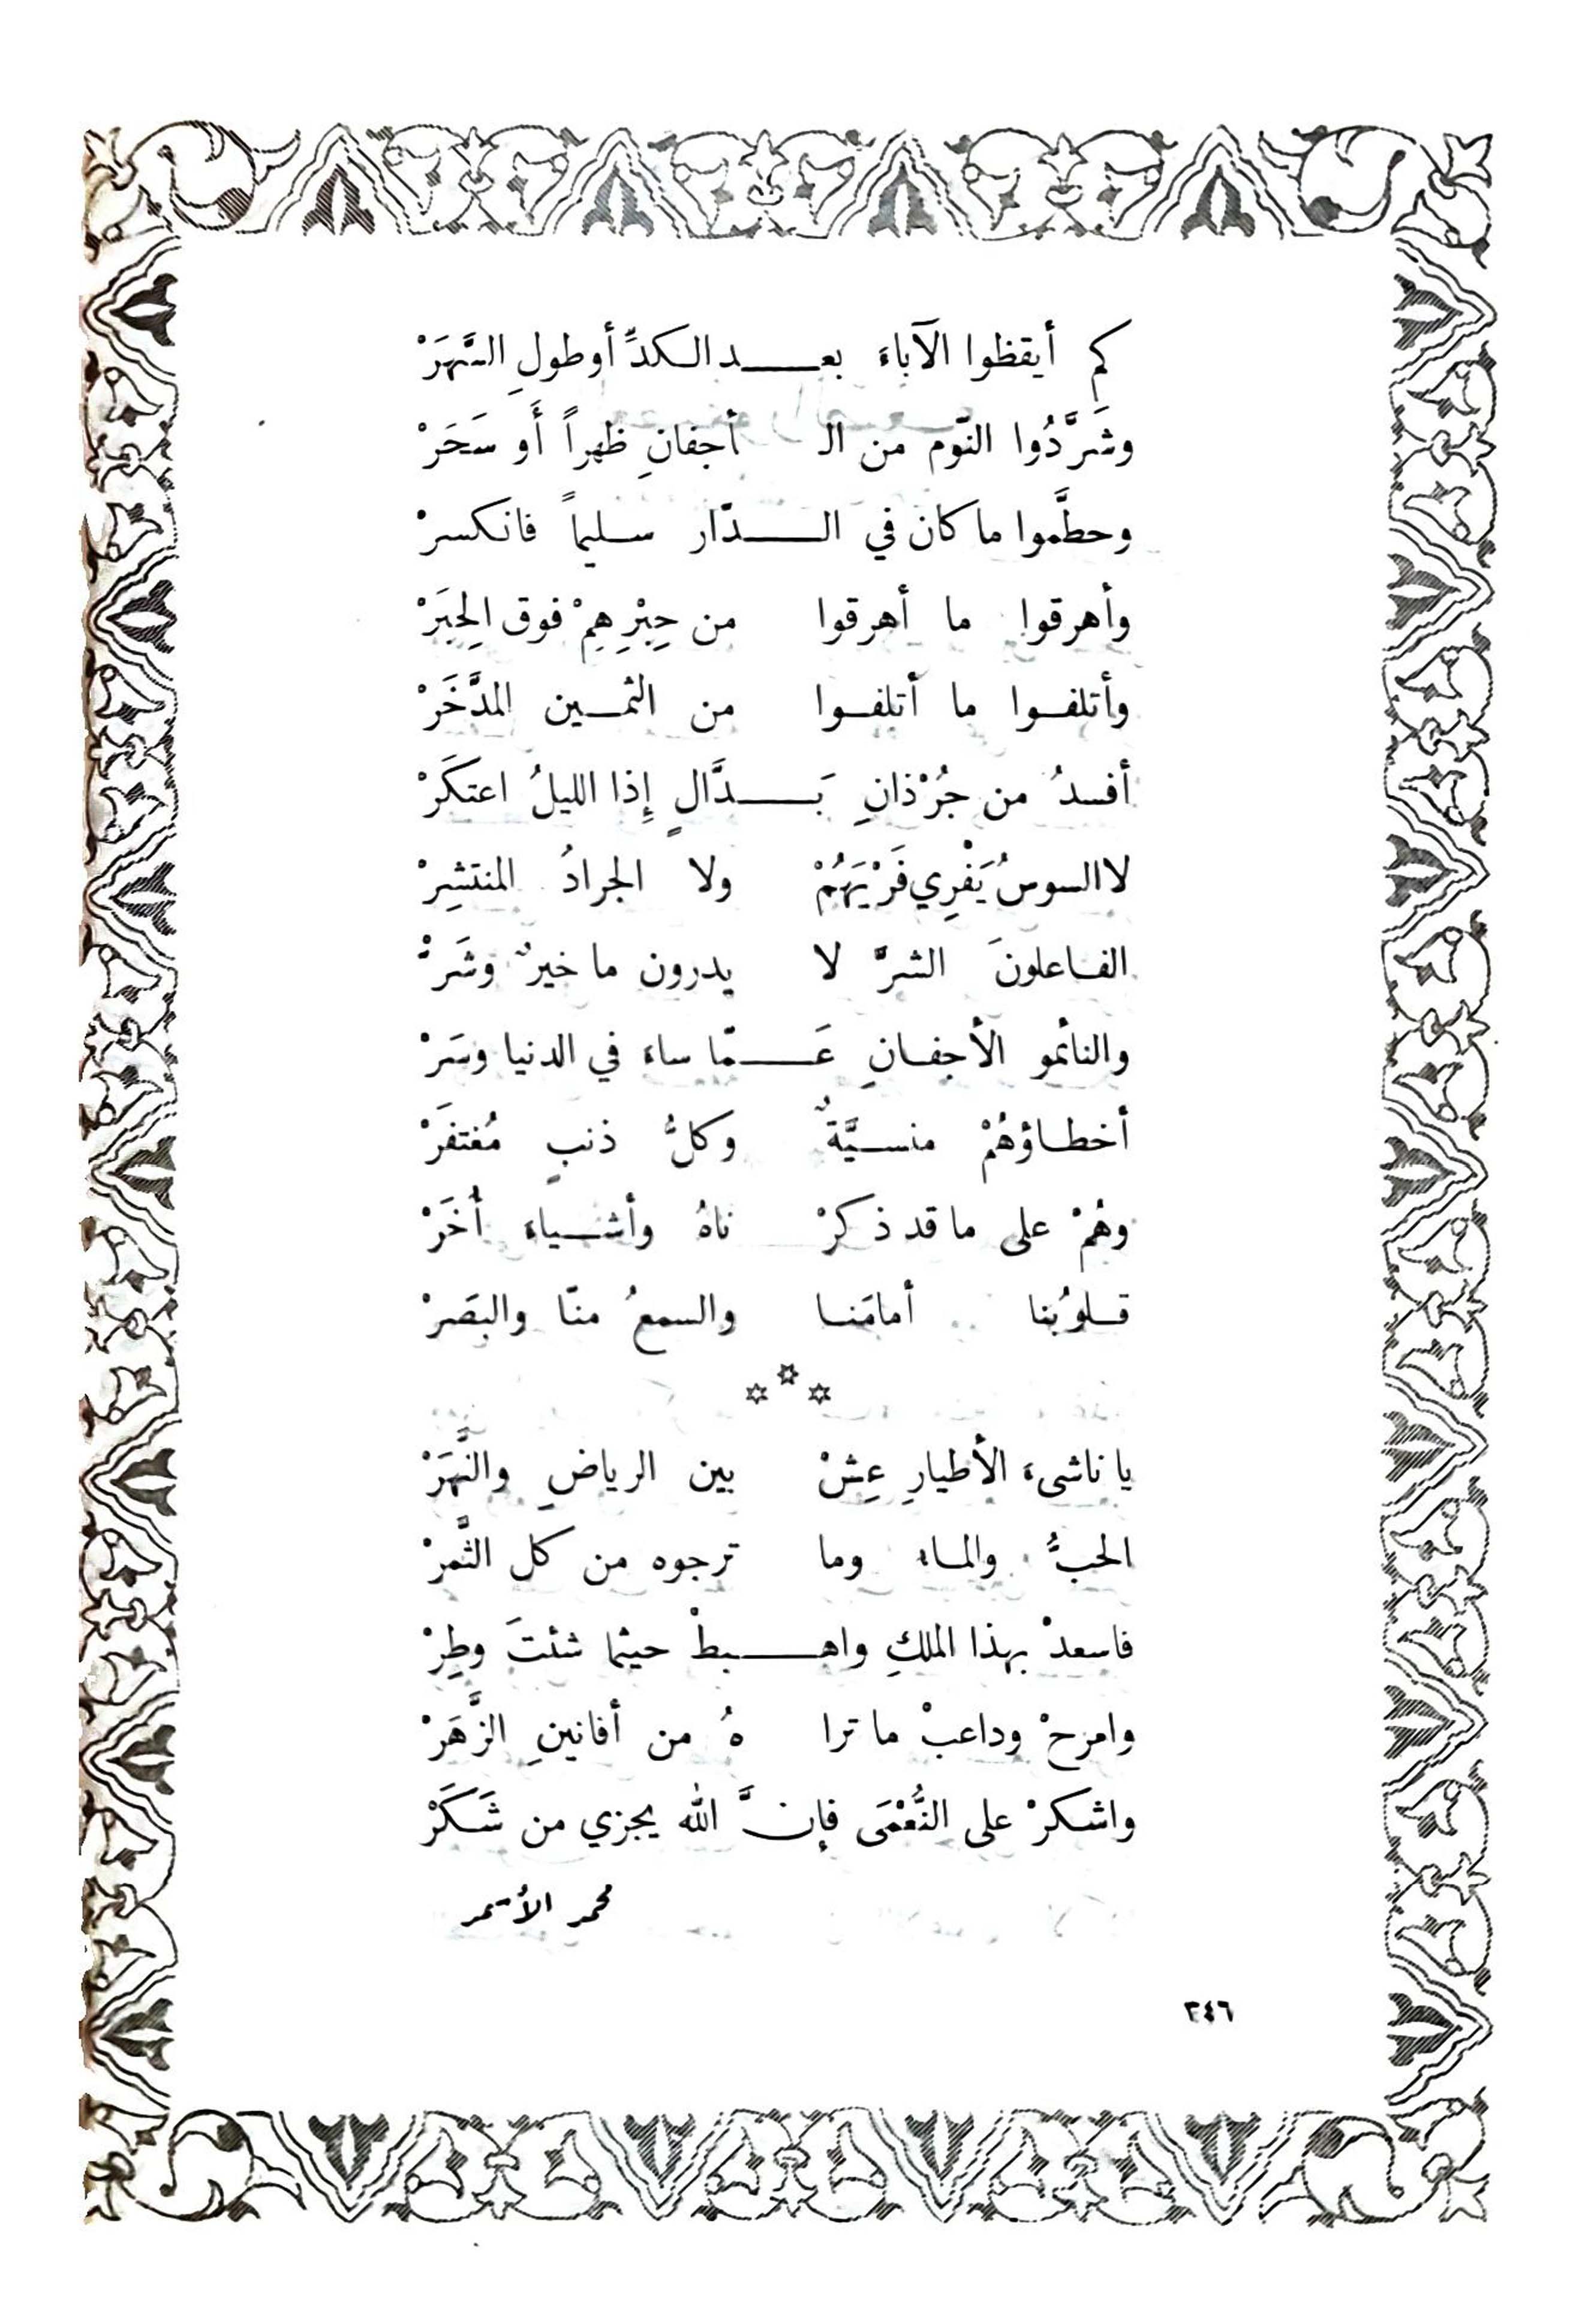 كم أيقظوا الآباءَ بعـــــد الكدِّ أو طولِ السَّهَرْ
وشَرَّدُوا النّوم من الـ أجفانِ ظهراً أَو سَحَرْ
وحطَّموا ما كان في الـــــدّار سليماً فانكسرْ
وأهرقوا ما أهرقوا من حِبْرِهِمْ فوق الحِبَرْ
وأتلفوا ما أتلفوا من الثمين المدَّخَرْ
أفسدُ من جُرْذانِ بَـــــدَّالٍ إِذا الليلُ اعتكَرْ
لا السوسُ يَفْرِي فَرْيَهُمْ ولا الجرادُ المنتشِرْ
الفاعلونَ الشرَّ لا يدرون ما خيرٌ وشَرْ
والنائمو الأجفانِ عَـــــمّا ساءَ في الدنيا وسَرْ
أخطاؤهُمْ منسيَّةٌ وكلُّ ذنبٍ مُغتفَرْ
وهُمْ على ما قد ذكرْ ناهُ وأشياءَ أُخَرْ
قلوبُنا أمامَنا والسمعُ منّا والبصَرْ
***
يا ناشىءَ الأطيارِ عِشْ بين الرياضِ والنَّهَرْ
الحبُّ والماء وما ترجوه من كل الثَّمرْ
فاسعدْ بهذا الملكِ واهـــــبطْ حيثما شئتَ وطِرْ
وامرحْ وداعبْ ما ترا هُ من أفانينِ الزَّهَرْ
واشكرْ على النُّعْمَى فإنَّ الله يجزي من شَكَرْ
محمد الأسمر
٢٤٦